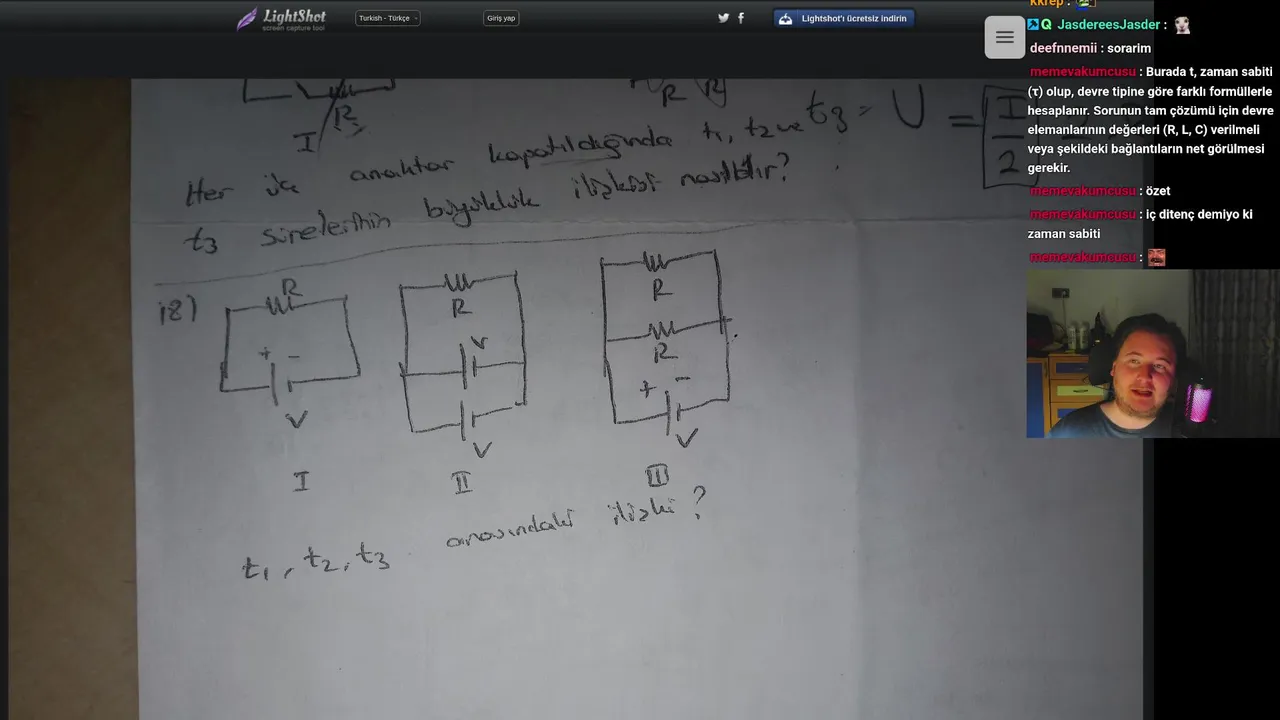 LightShot
screen capture tool
Turkish - Türkçe
Giriş yap
Lightshot'ı ücretsiz indirin
kkrep :
JasdereesJasder :
deefnnemii : sorarim
memevakumcusu : Burada t, zaman sabiti
(τ) olup, devre tipine göre farklı formüllerle
hesaplanır. Sorunun tam çözümü için devre
elemanlarının değerleri (R, L, C) verilmeli
veya şekildeki bağlantıların net görülmesi
gerekir.
memevakumcusu : özet
memevakumcusu : iç ditenç demiyo ki
zaman sabiti
memevakumcusu :
R
R R
I
Her üç anahtar kapatıldığında t1, t2 ve t3 = U = I
2
t3 sürelerinin büyüklük ilişkisi nasıldır?
18)
R
+ -
V
I
R
V
V
II
R
R
+ -
V
III
t1, t2, t3 arasındaki ilişki?